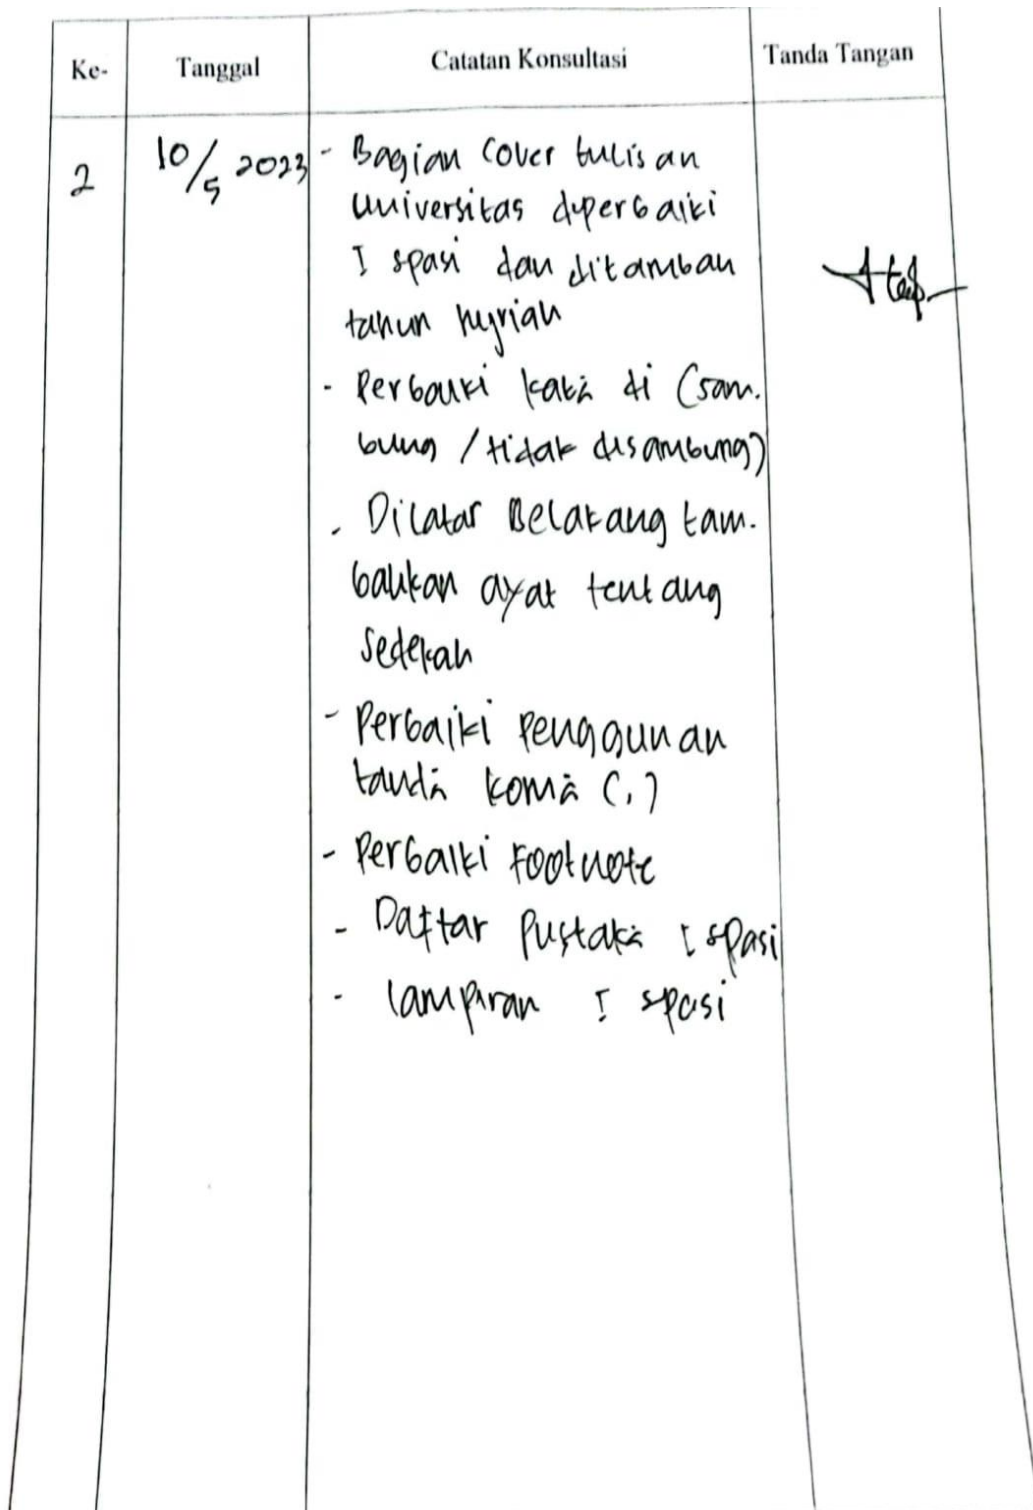 Ke- Tanggal Catatan Konsultasi Tanda Tangan
2 10/5 2023 - Bagian Cover tulisan
universitas diperbaiki
I spasi dan ditambah
tahun hijriah
- Perbaiki kata di (sam-
bung / tidak disambung)
- Dilatar Belakang tam-
bahkan ayat tentang
Sedekah
- Perbaiki Penggunan
tanda koma (,)
- Perbaiki Footnote
- Daftar Pustaka I spasi
- lampiran I spasi